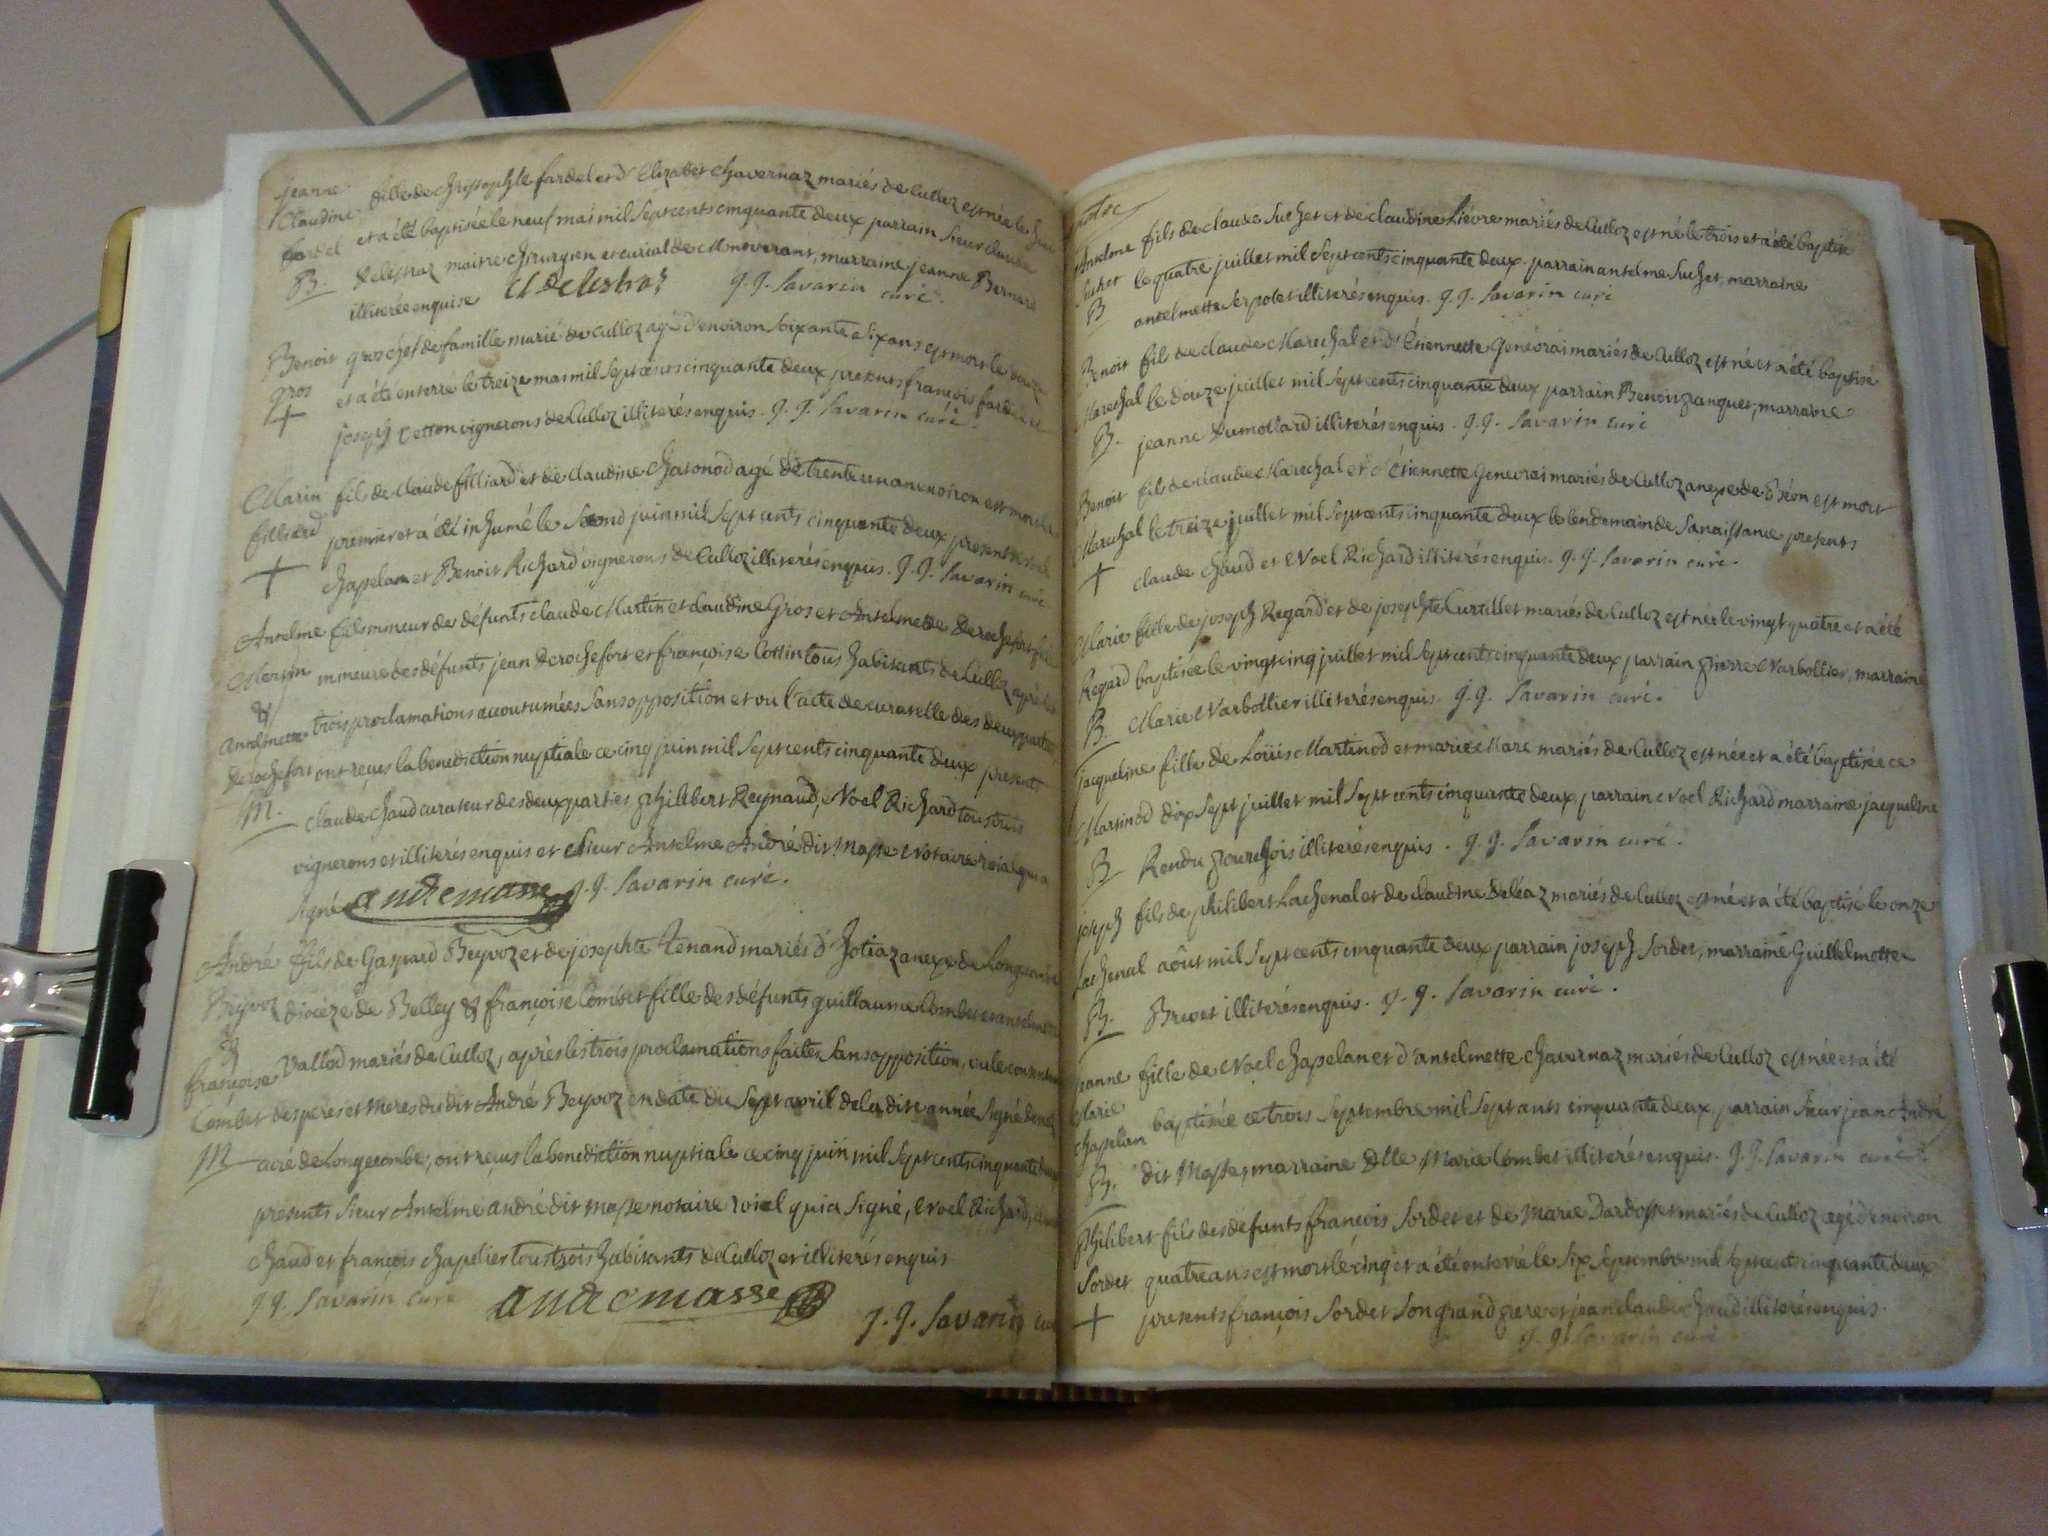 jeanne fille de christophle fardel et d'Elizabet chavernaz mariés de Culloz est née le
Claudine et a été baptisée le neuf mai mil sept cents cinquante deux parrain sieur claude
fardel Delestraz maitre chirurgien et curial de marraine jeanne Bernard
B. illiterée enquise Cl Delestraz J. J. Savarin curé.
Benoit gros chef de famille marié de Culloz agé d'environ soixante six ans est mort le douze
gros et a été enterré le treize mai mil sept cents cinquante deux presents françois fardel et
+ joseph vignerons de Culloz illiterés enquis. J. J. Savarin curé.
Marin fils de claude filliard et de claudine chatonod agé de trente un an environ est mort le
filliard premier et a été inhumé le second juin mil sept cents cinquante deux presents
+ chapelan et Benoit Richard vignerons de Culloz illiterés enquis. J. J. Savarin curé
Anselme fils mineur de défunts claude Martin et claudine Gros et Anselmette Derochefort fille
Martin mineure des défunts jean Derochefort et françoise Cottin tous habitants de Culloz après les
& trois proclamations accoutumées sans opposition et vu l'acte de curatelle des deux parties
Anselmette
Derochefort ont reçus la benediction nuptiale ce cinq juin mil sept cents cinquante deux presents
M. claude chaud curateur des deux parties, philibert Reynaud, Noel Richard tous trois
vignerons et illiterés enquis et sieur Anselme André dit Masse Notaire roial qui a
signé andremasse J. J. Savarin curé.
André fils de Gaspard Beyvoz et de josephte Tenand mariés d'hotiaz anexe de Longecombe
Beyvoz diocèze de Belley & françoise Combet fille des défunts guillaume Combet et anselmette
& Vallod mariés de Culloz, après les trois proclamations faites sans opposition, vu le consentement
françoise
Combet des peres et meres du dit André Beyvoz en date du sept avril de la dite année signé
M curé de Longecombe, ont reçus la benediction nuptiale ce cinq juin mil sept cents cinquante deux
presents sieur Anselme andré dit masse notaire roial qui a signé, Noel Richard,
chaud et françois chapelier tous trois habitants de Culloz et illiterés enquis
J. J. Savarin curé andremasse J. J. Savarin curé
Anselme fils de claude Suchet et de claudine Liévre mariés de Culloz est né le trois et a été baptisé
Suchet le quatre juillet mil sept cents cinquante deux. parrain anselme Suchet, marraine
B anselmette Serpolet illiterés enquis. J. J. Savarin curé
Benoit fils de claude Marechal et d'Etiennette Genevrai mariés de Culloz est né et a été baptisé
Marechal le douze juillet mil sept cents cinquante deux parrain Benoit franquet, marraine
B. jeanne Dumollard illiterés enquis. J. J. Savarin curé
Benoit fils de claude Marechal et d'Etiennette Genevrai mariés de Culloz anexe de Béon est mort
Marechal le treize juillet mil sept cents cinquante deux le lendemain de sa naissance presents
+ claude chaud et Noel Richard illiterés enquis. J. J. Savarin curé.
Marie fille de joseph Regard et de josephte Curtillet mariés de Culloz est née le vingt quatre et a été
Regard baptisée le vingt cinq juillet mil sept cents cinquante deux parrain pierre Narbollier, marraine
B. Marie Narbollier illiterés enquis. J. J. Savarin curé.
jacqueline fille de Loüis Martinod et marie Marc mariés de Culloz est née et a été baptisée ce
Martinod dix sept juillet mil sept cents cinquante deux parrain Noel Richard marraine jacqueline
B Rendu illiterés enquis. J. J. Savarin curé.
joseph fils de philibert Lachenal et de claudine Deléaz mariés de Culloz est né et a été baptisé le onze
Lachenal aôut mil sept cents cinquante deux parrain joseph Sordet, marraine Guillelmotte
B. Brevet illiterés enquis. J. J. Savarin curé.
jeanne fille de Noel Chapelan et d'anselmette chavernaz mariés de Culloz est née et a été
Marie
chapelan baptisée ce trois septembre mil sept cents cinquante deux, parrain sieur jean André
B. dit Masse, marraine Dlle Marie Combet illiterés enquis. J. J. Savarin curé.
Philibert fils des défunts françois Sordet et de Marie Dardosset mariés de Culloz agé d'environ
Sordet quatre ans est mort le cinq et a été enterré le six septembre mil sept cents cinquante deux
+ presents françois Sordet son grand pere et jean claude chaud illiterés enquis.
J. J. Savarin curé